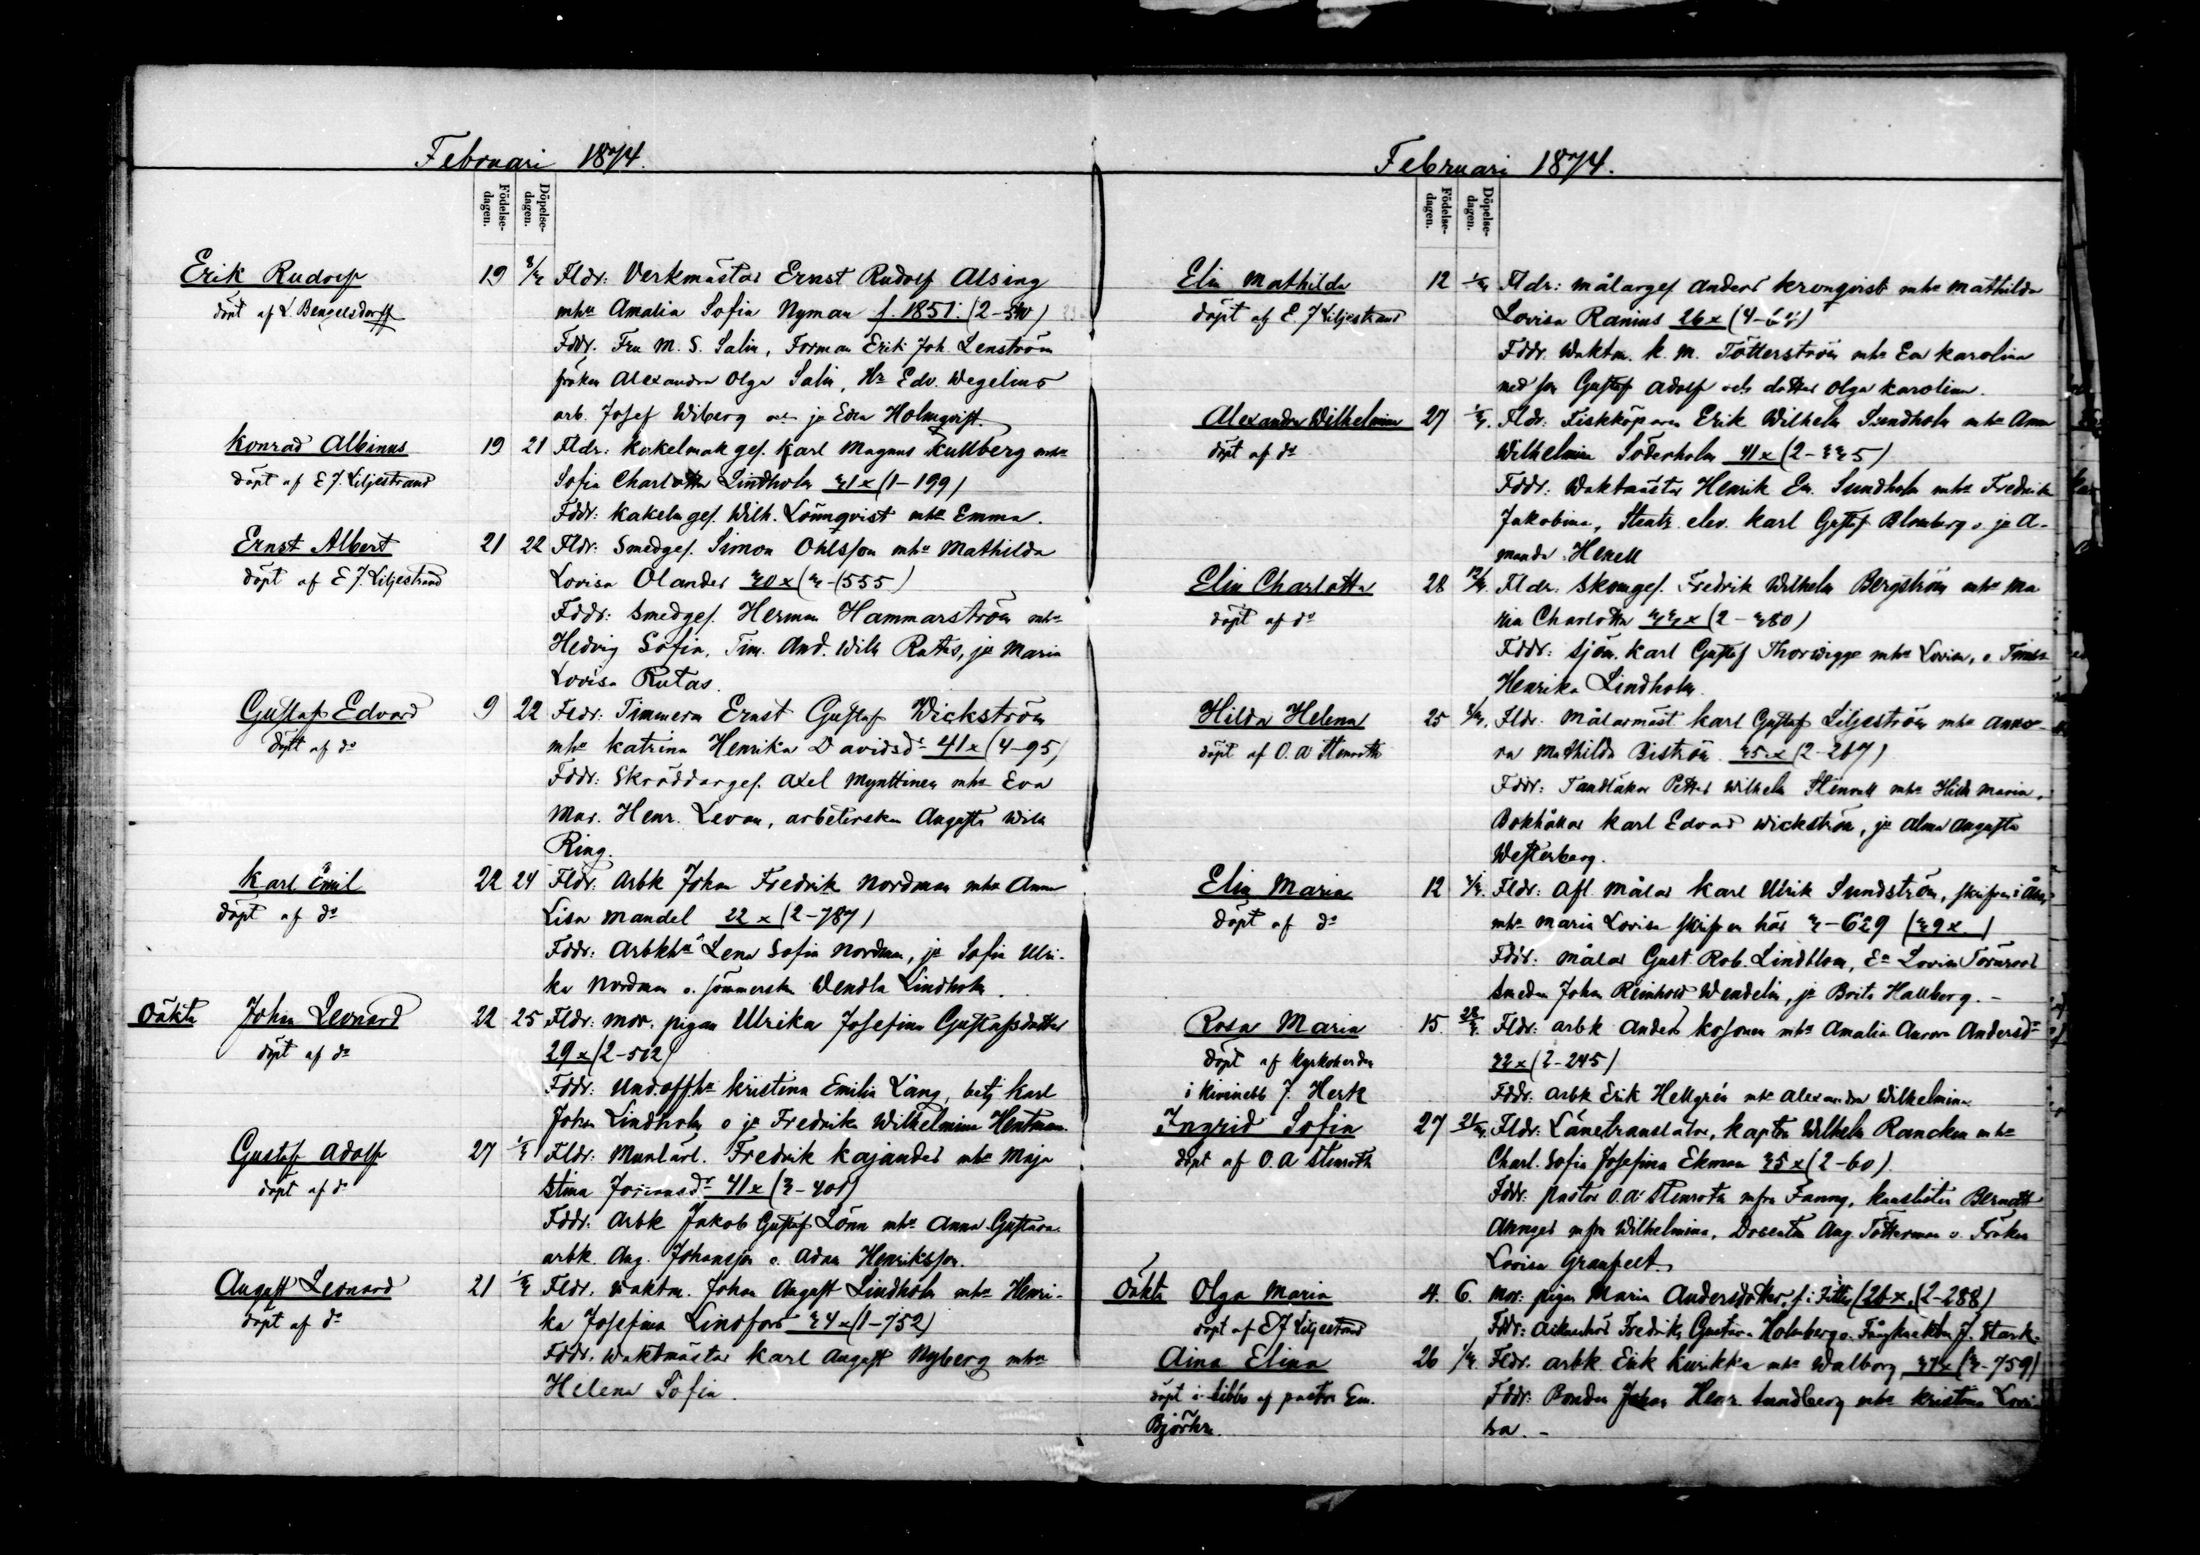 Februari 1874.
Födelse-
dagen.
Döpelse-
dagen.
Erik Rudolf
döpt af L. Bengelsdorff
19
Fldr: Verkmästar Ernst Rudolf Alsing
mhu Amalia Sofia Nyman f. 1851. (2-
Fddr. Fru M. S. Salin, Forman Erik Joh. Lenström
fröken Alexandra Olga Salin, Hr Edv. Wegelius
arb. Josef Wiberg och je Edla Holmqvist.
Konrad Albinus
döpt af E J. Liljestrand
19 21 Fldr: kakelmakges. Karl Magnus Kullberg mhu
Sofia Charlotta Lindholm 31 x (1-199)
Fddr: kakelmges. Wilh. Lönnqvist mhu Emma.
Ernst Albert
döpt af E J. Liljestrand
21 22 Fldr: Smedges. Simon Ohlsson mhu Mathilda
Lovisa Olander 30 x (
Fddr: Smedges. Herman Hammarström mhu
Hedvig Sofia, Tim. And. Wilh Rutas, je Maria
Lovisa Rutas.
Gustaf Edvard
döpt af do
9 22 Fldr: Timmerm Ernst Gustaf Wickström
mhu Katrina Henrika Davidsdr 41 x (4-95)
Fddr: Skräddarges. Axel Mynttinen mhu Eva
Mar. Henr. Levon, arbeterskan Augusta Wilh
Ring.
Karl Emil
döpt af do
22 24 Fldr: Arbk Johan Fredrik Nordman mhu Anna
Lisa Mandel 22 x (2-787)
Fddr: Arbkhu Lena Sofia Nordman, je Sofia Ulri-
ka Nordman o. sömmerskan Wendla Lindholm.
Oäkta Johan Leonard
döpt af do
22 25 Fldr: Mor. pigan Ulrika Josefina Gustafsdotter
29 x (2-512)
Fddr: Und.offhu Kristina Emilia Lång, betj Karl
Johan Lindholm o je Fredrika Wilhelmina Hentman.
Gustaf Adolf
döpt af do
27 1/3 Fldr: Murlärl. Fredrik Kajander mhu Maja
Stina Johansdr 41 x (3-401)
Fddr: Arbk Jakob Gustaf Lönn mhu Anna Gustava
arbk. Aug. Johansson o. Adam Henriksson.
August Leonard
döpt af do
21 1/3 Fldr. Waktm. Johan August Lindholm mhu Henri-
ka Josefina Lindfors 34 x (1-752)
Fddr. Waktmästar Karl August Nyberg mhu
Helena Sofia.
Februari 1874.
Födelse-
dagen.
Döpelse-
dagen.
Elin Mathilda
döpt af E. J Liljestrand
12 1/3 Fldr: målarges Anders Kronqvist mhu Mathilda
Lovisa Ranius 26 x (4-
Fddr. Waktm. K. M. Tötterström mhu Eva Karolina
med son Gustaf Adolf och dotter Olga Karolina.
Alexandra Wilhelmina
döpt af do
27 1/3 Fldr: Fiskköparen Erik Wilhelm Sundholm mhu Anna
Wilhelmina Söderholm 41 x (2-335)
Fddr: Waktmästar Henrik Em. Sundholm mhu Fredrika
Jakobina, Stents. elev. Karl Gustaf Blomberg o. je A-
manda Henell
Elin Charlotta
döpt af do
28 Fldr. Skomges. Fredrik Wilhelm Bergström mhu Ma
ria Charlotta 33 x (2-380)
Fddr: sjöm. Karl Gustaf Thorwigge mhu Lovisa, o.
Henrika Lindholm.
Hilda Helena
döpt af O. A Stenroth
25 Fldr. Målarmäst Karl Gustaf Liljeström mhu Auro-
ra Mathilda Biström 35 x (2-267)
Fddr: Tandläkar Petter Wilhelm mhu Hilda Maria,
Bokhållar Karl Edvard Wickström, je Alma Augusta
Westerberg.
Elin Maria
döpt af do
12 Fldr: Afl. Målar Karl Ulrik Sundström, skrifven i Åbo,
mhu Maria Lovisa skrifven här 3-629 (39 x)
Fddr: Målar Gust. Rob. Lindblom, Ea Lovisa Törnroos
Smeden Johan Reinhold Wendelin, je Brita Hallberg. -
Rosa Maria
döpt af Kyrkoherden
i Kivinebb J. Herk
15. 28/3 Fldr: Arbk Anders Kosonen mhu Amalia Aurora Andersdr
32 x (2-245)
Fddr. Arbk Erik Hellgrén mhu Alexandra Wilhelmina
Ingrid Sofia
döpt af O. A Stenroth
27 21/3 Fldr. Länetranslator, Kapten Wilhelm Rancken mhu
Charl. Sofia Josefina Ekman 35 x (2-60).
Fddr. Pastor O. A. Stenroth mfru Fanny, kanslisten Berndt
mfru Wilhelmina, Docenten Aug. Tötterman o. Fröken
Lovisa Granfelt.
Oäkta Olga Maria
döpt af E J Liljestrand
4. 6. Mor: pigan Maria Andersdotter, f. i (26 x. (2-288)
Fddr: Fredrika Gustava Holmberg o. J. Stark.
Aina Elina
döpt i Sibbo af pastor Em.
Björkm.
26 Fldr. Arbk Erik Kurikka mhu Walborg 37 x (3-759)
Fddr: Bonden Johan Henr. Sundberg mhu Kristina Lovi-
sa. -